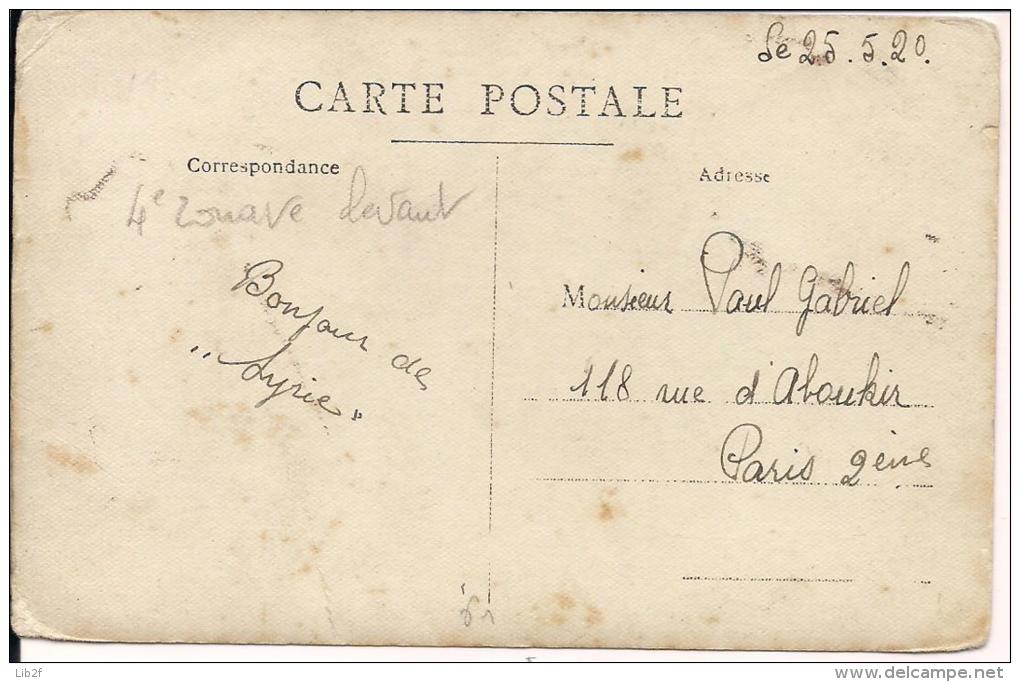 Le 25.5.20.
CARTE POSTALE
Correspondance
Adresse
4e zouave Levant
Bonjour de
"Syrie"
Monsieur Paul Gabriel
118 rue d'Aboukir
Paris 2ème
Lib2f
www.delcampe.net